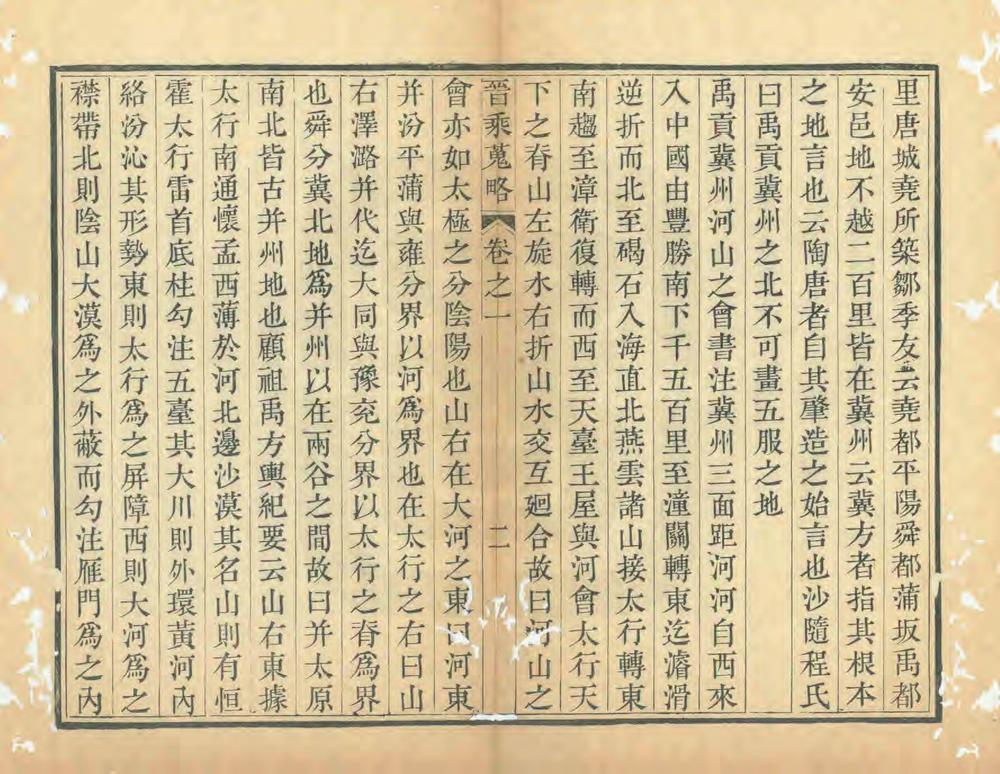 里唐城堯所築鄒季友云堯都平陽舜都蒲坂禹都
安邑地不越二百里皆在冀州云冀方者指其根本
之地言也云陶唐者自其肇造之始言也沙隨程氏
曰禹貢冀州之北不可畫五服之地
禹貢冀州河山之會書注冀州三面距河河自西來
入中國由豐勝南下千五百里至潼關轉東迄濬滑
逆折而北至碣石入海直北燕雲諸山接太行轉東
南趨至漳衛復轉而西至天臺王屋與河會太行天
下之脊山左旋水右折山水交互廻合故曰河山之
晉乘蒐略 卷之一 二
會亦如太極之分陰陽也山右在大河之東曰河東
并汾平蒲與雍分界以河爲界也在太行之右曰山
右澤潞并代迄大同與豫兖分界以太行之脊爲界
也舜分冀北地爲并州以在兩谷之間故曰并太原
南北皆古并州地也顧祖禹方輿紀要云山右東據
太行南通懷孟西薄於河北邊沙漠其名山則有恒
霍太行雷首底柱勾注五臺其大川則外環黃河內
絡汾沁其形勢東則太行爲之屏障西則大河爲之
襟帶北則陰山大漠爲之外蔽而勾注雁門爲之內